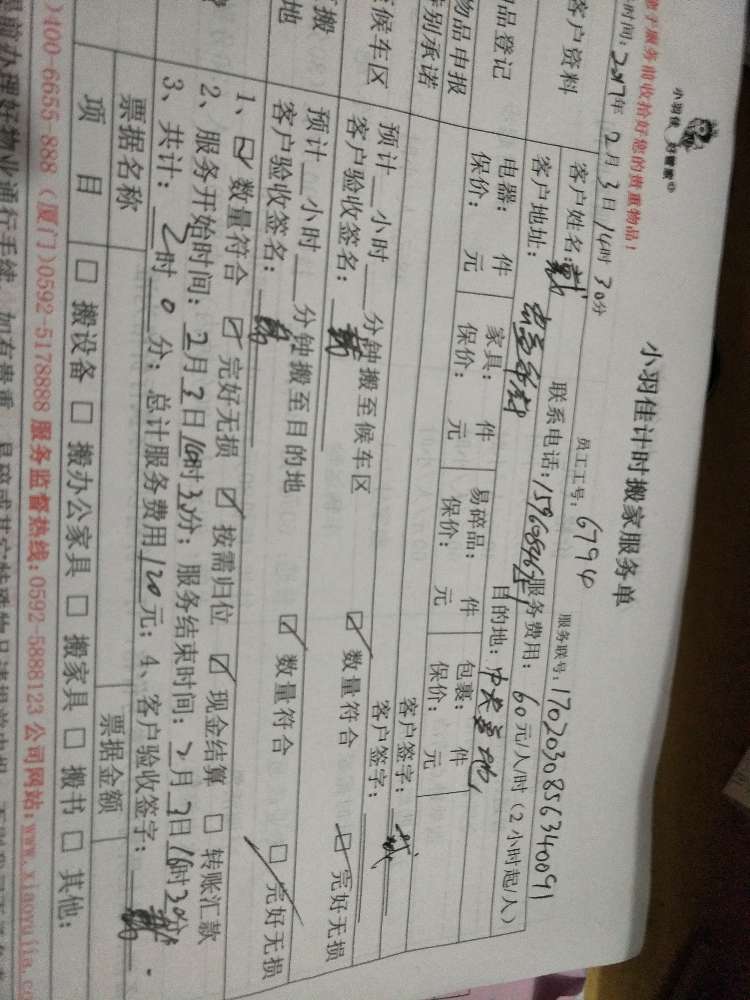 小羽佳 好管家
小羽佳计时搬家服务单
服务前收拾好您的贵重物品!
员工工号: 6794
服务联号: 1702030856340091
时间: 2017年2月3日14时30分
客户资料
客户姓名: 戴
联系电话:
服务费用: 60元/人/时(2小时起/人)
客户地址:
目的地:
品登记
电器: 件
家具: 件
易碎品: 件
包裹: 件
物品申报
保价: 元
保价: 元
保价: 元
保价: 元
特别承诺
客户签字:
客户签字: 戴
候车区
预计__小时___分钟搬至候车区
☑ 数量符合
☑ 完好无损
客户验收签名: 戴
搬
地
预计__小时___分钟搬至目的地
☑ 数量符合
☐ 完好无损
客户验收签名:
1、☑ 数量符合 ☑ 完好无损 ☑ 按需归位 ☑ 现金结算 ☐ 转账汇款
2、服务开始时间: 2月3日 时30分; 服务结束时间: 2月3日16时30分
3、共计: 2时0分; 总计服务费用120元; 4、客户验收签字:
票据名称
票据金额
项 目
☐ 搬设备 ☐ 搬办公家具 ☐ 搬家具 ☐ 搬书 ☐ 其他:
)400-6655-888 (厦门)0592-5178888 服务监督热线:0592-5888123 公司网站:www.xiaoyujia.co
提前办理好物业通行手续